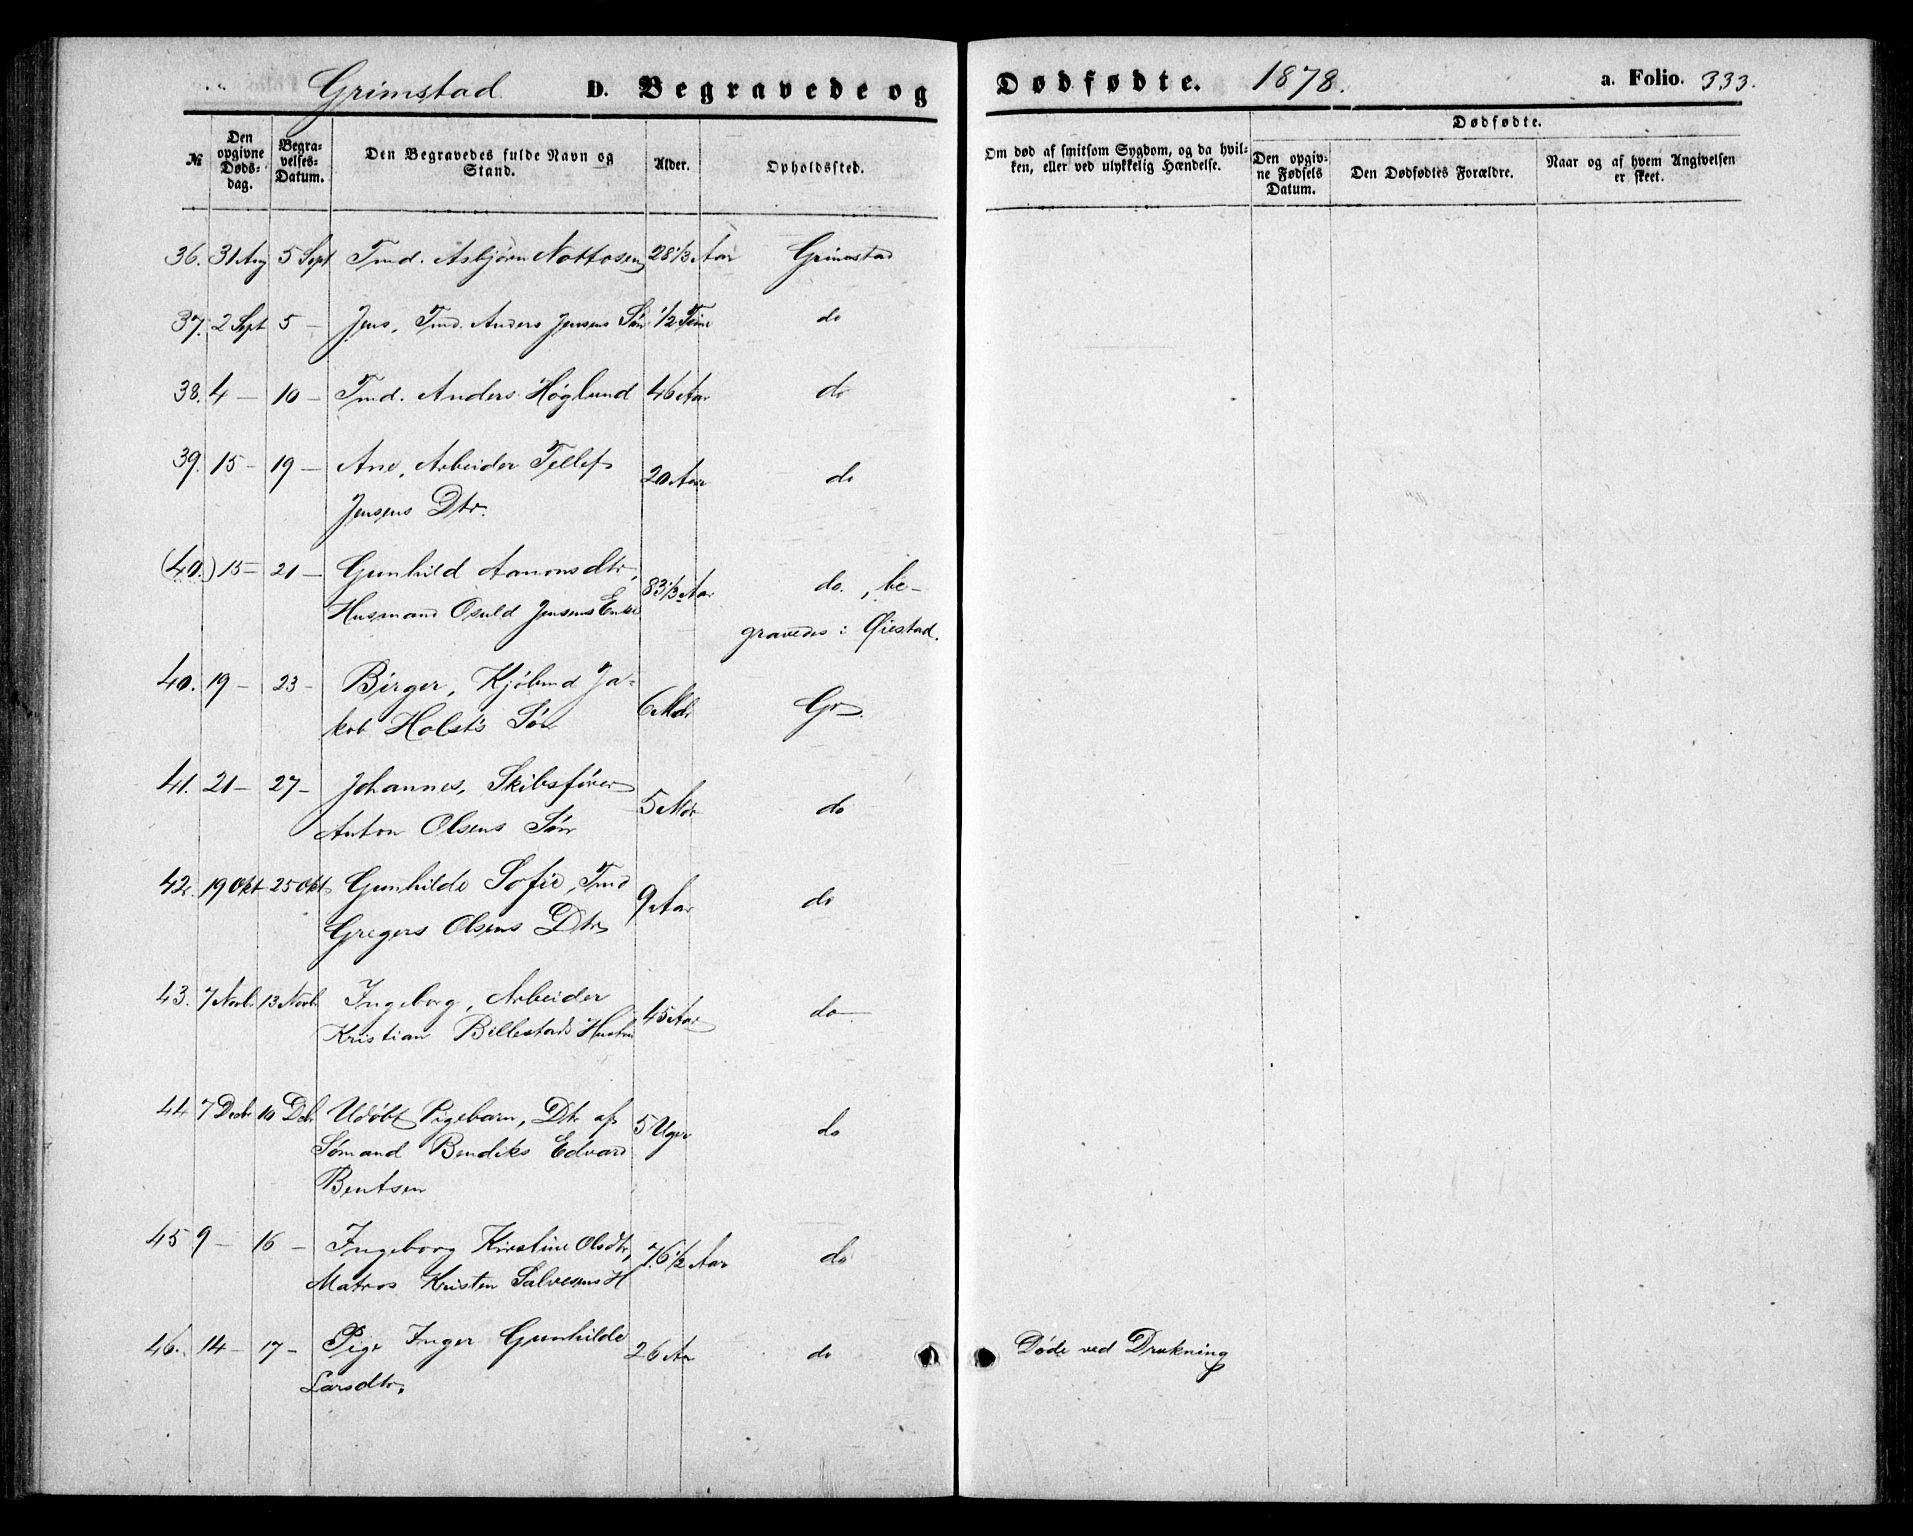 Grimstad D. Begravede og Dødfødte. 1878. a. Folio. 333.
№ Den opgivne Døds-dag. Begra-velses-Datum. Den Begravedes fulde Navn og Stand. Alder. Opholdssted. Om død af smitsom Sygdom, og da hvil-ken, eller ved ulykkelig Hændelse. Dødfødte. Den opgiv-ne Fødsels Datum. Den Dødfødtes Forældre. Naar og af hvem Angivelsen er skeet.
36. 31 Aug 5 Sept Tmd. Asbjørn Nottosen 28 1/3 Aar Grimstad
37. 2 Sept 5 — Jens, Tmd. Anders Jensens Søn 1/2 Time do
38. 4 — 10 — Tmd. Anders Høglund 46 Aar do
39. 15 — 19 — Ane, Arbeider Tellef 20 Aar do
Jensens Dtr.
(40.) 15 — 21 — Gunhild Aanonsdtr, 83 1/3 Aar do. , be-
Husmand Osuld Jensens Enke gravedes i Øiestad.
40. 19 — 23 — Birger, Kjøbmd Ja- 6 Mdr Gr.
kob Holsts Søn
41. 21 — 27 — Johannes, Skibsfører 5 Mdr do
Anton Olsens Søn
42. 19 Okt 25 Okt Gunhilde Sofie, Tmd 9 Aar do
Gregers Olsens Dtr
43. 7 Novb. 13 Novb. Ingeborg, Arbeider 45 Aar do
Kristian Billestads Hustru
44 7 Decb 10 Deb. Udøbt Pigebarn, Dtr af 5 Uger do
Sømand Bendiks Edvard
Bentsen
45 9 — 16 — Ingeborg Kirstine Olsdtr, 76 1/2 Aar do
Matros Kristen Salvesens H
46. 14 — 17 — Pige Inger Gunhilde 26 Aar do Døde ved Drukning
Larsdtr.